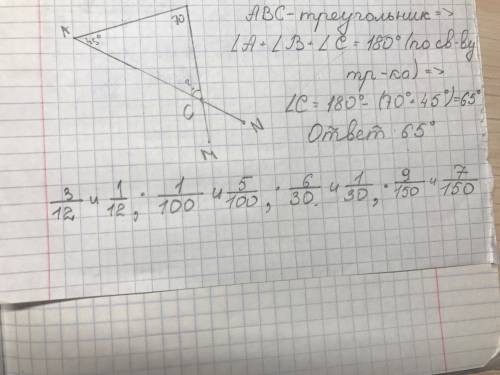 ABC-треугольник =>
∠A + ∠B + ∠C = 180° (по св-ву
тр-ка) =>
∠C = 180° - (70° + 45°) = 65°
Ответ 65°
A
45°
70
?
C
N
M
3/12 и 1/12, 1/100 и 5/100, 6/30 и 1/30, 9/150 и 7/150